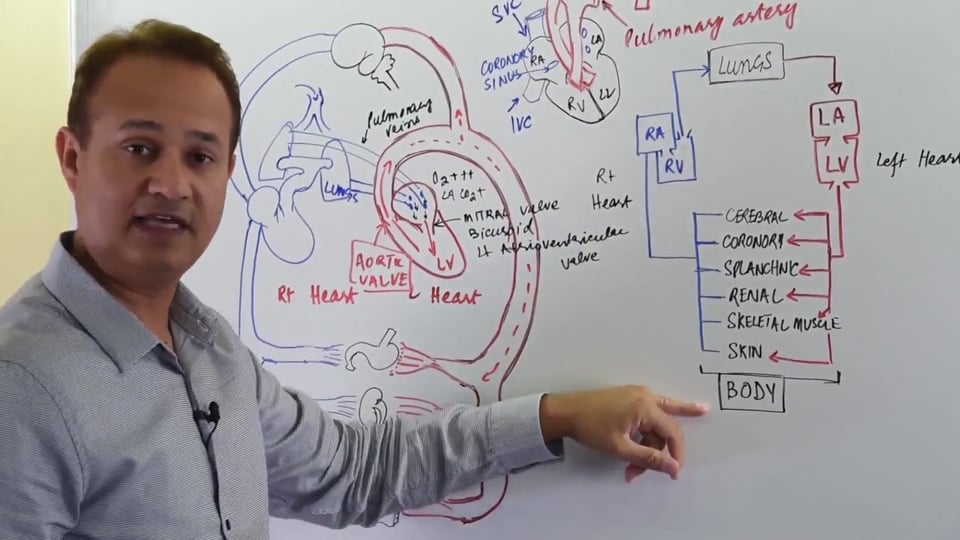 SVC
CORONORY
SINUS
IVC
RA
LA
RV
LV
Pulmonary artery
Pulmonary
veins
LUNGS
O2 +++
LA CO2 +
MITRAL valve
Bicuspid
Lt Atrioventricular
valve
AORTIC
VALVE
LV
Rt Heart
L Heart
LUNGS
RA
RV
LA
LV
Rt
Heart
Left Heart
CEREBRAL
CORONORY
SPLANCHNIC
RENAL
SKELETAL MUSCLE
SKIN
BODY